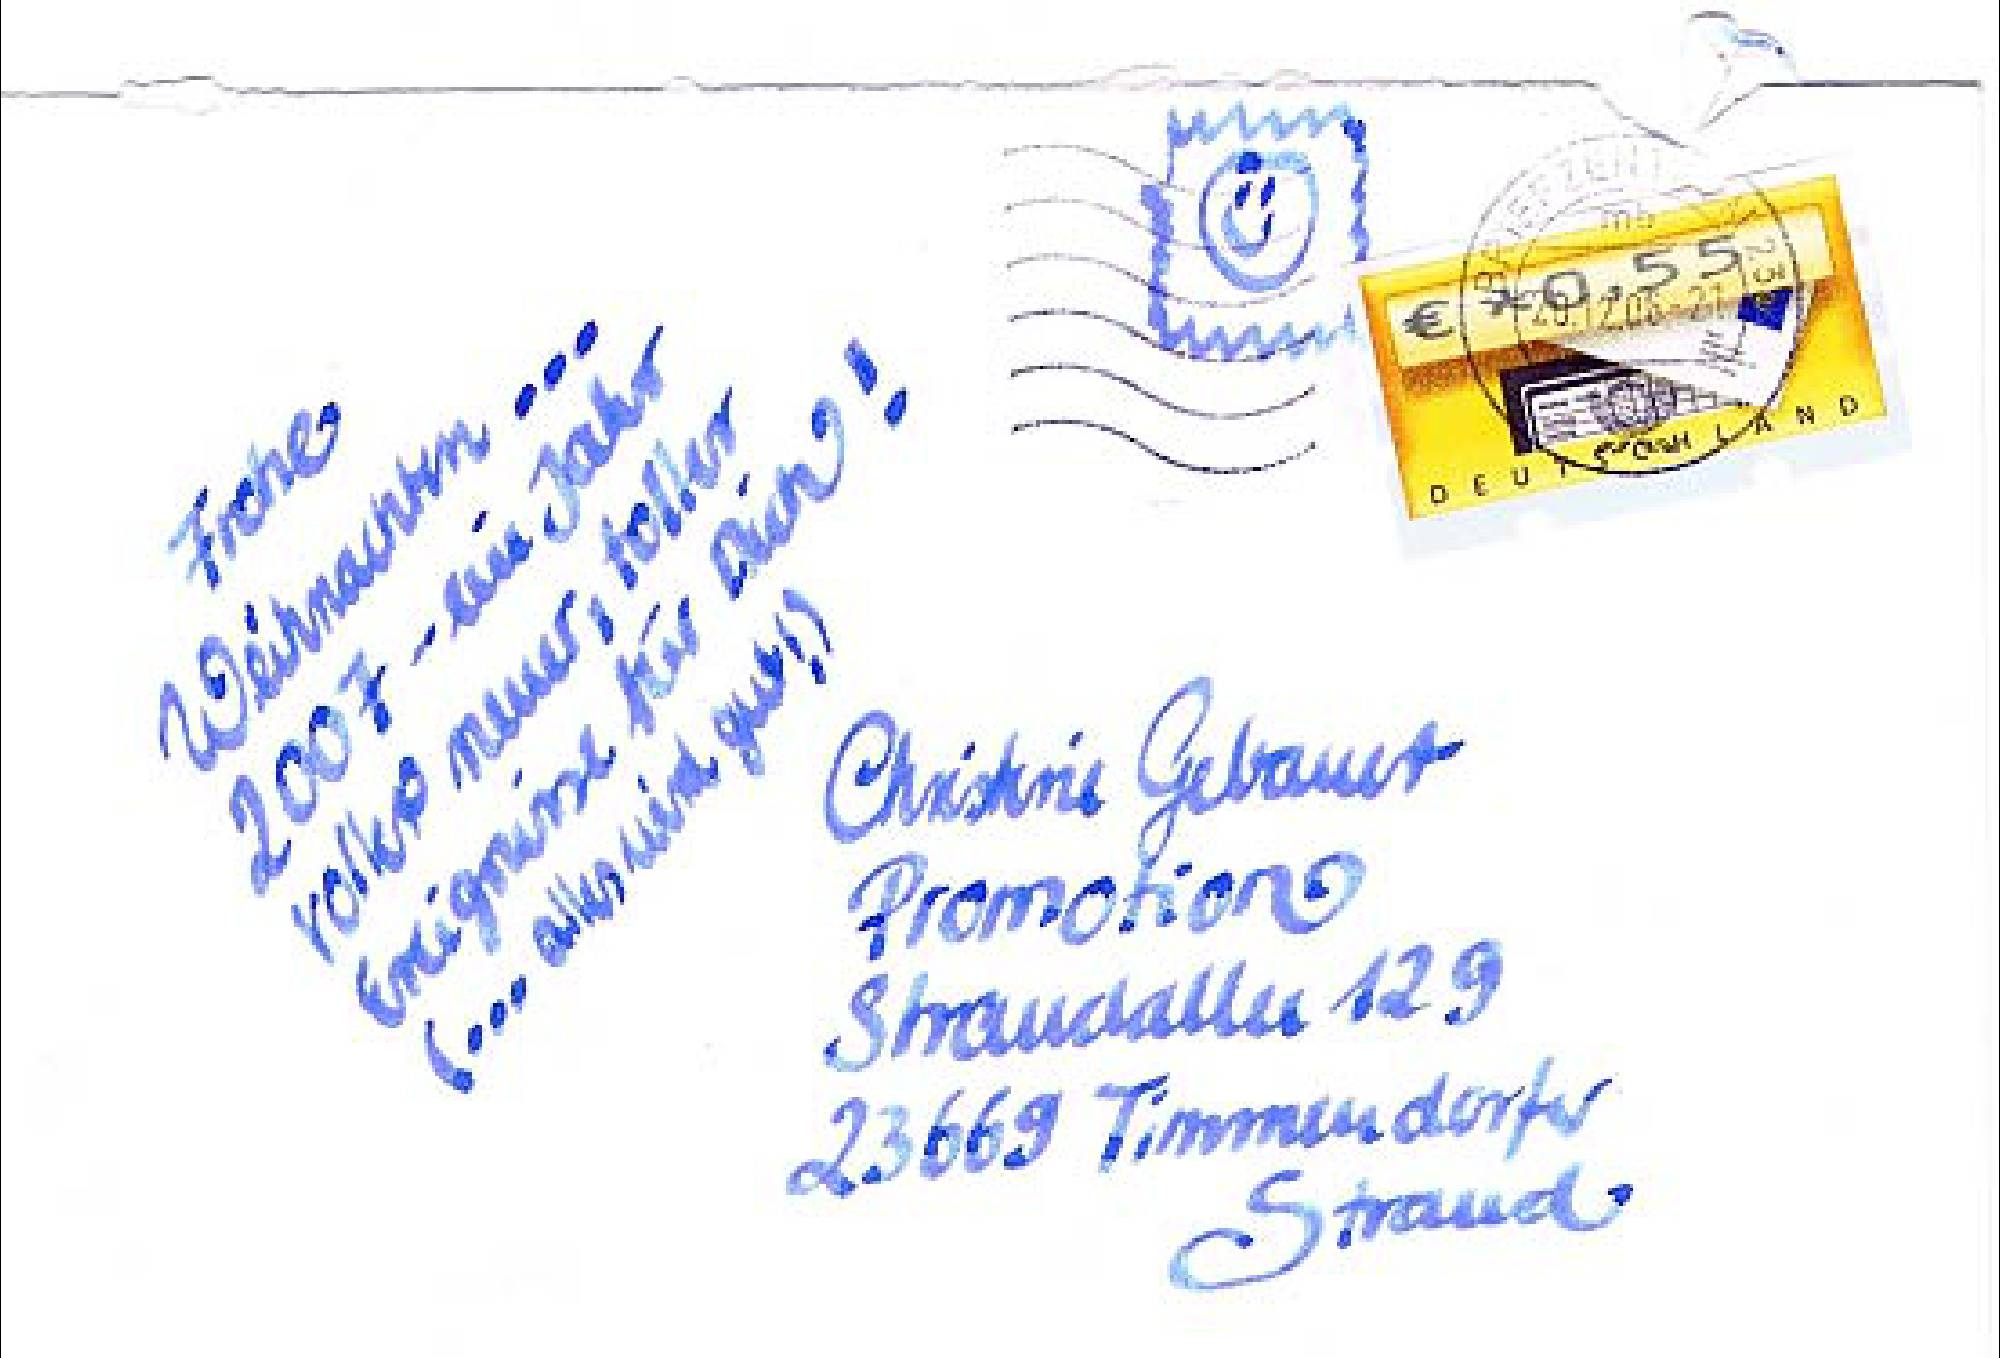 Frohe
Weihnachten ...
2007 - ein Jahr
voller neuer, toller
Ereignisse für Dich!
(... alles wird gut!)
€ *0,55
DEUTSCHLAND
BRIEFZENTRUM
mb
23
Christine Gebauer
Promotion
Strandallee 129
23669 Timmendorfer
Strand